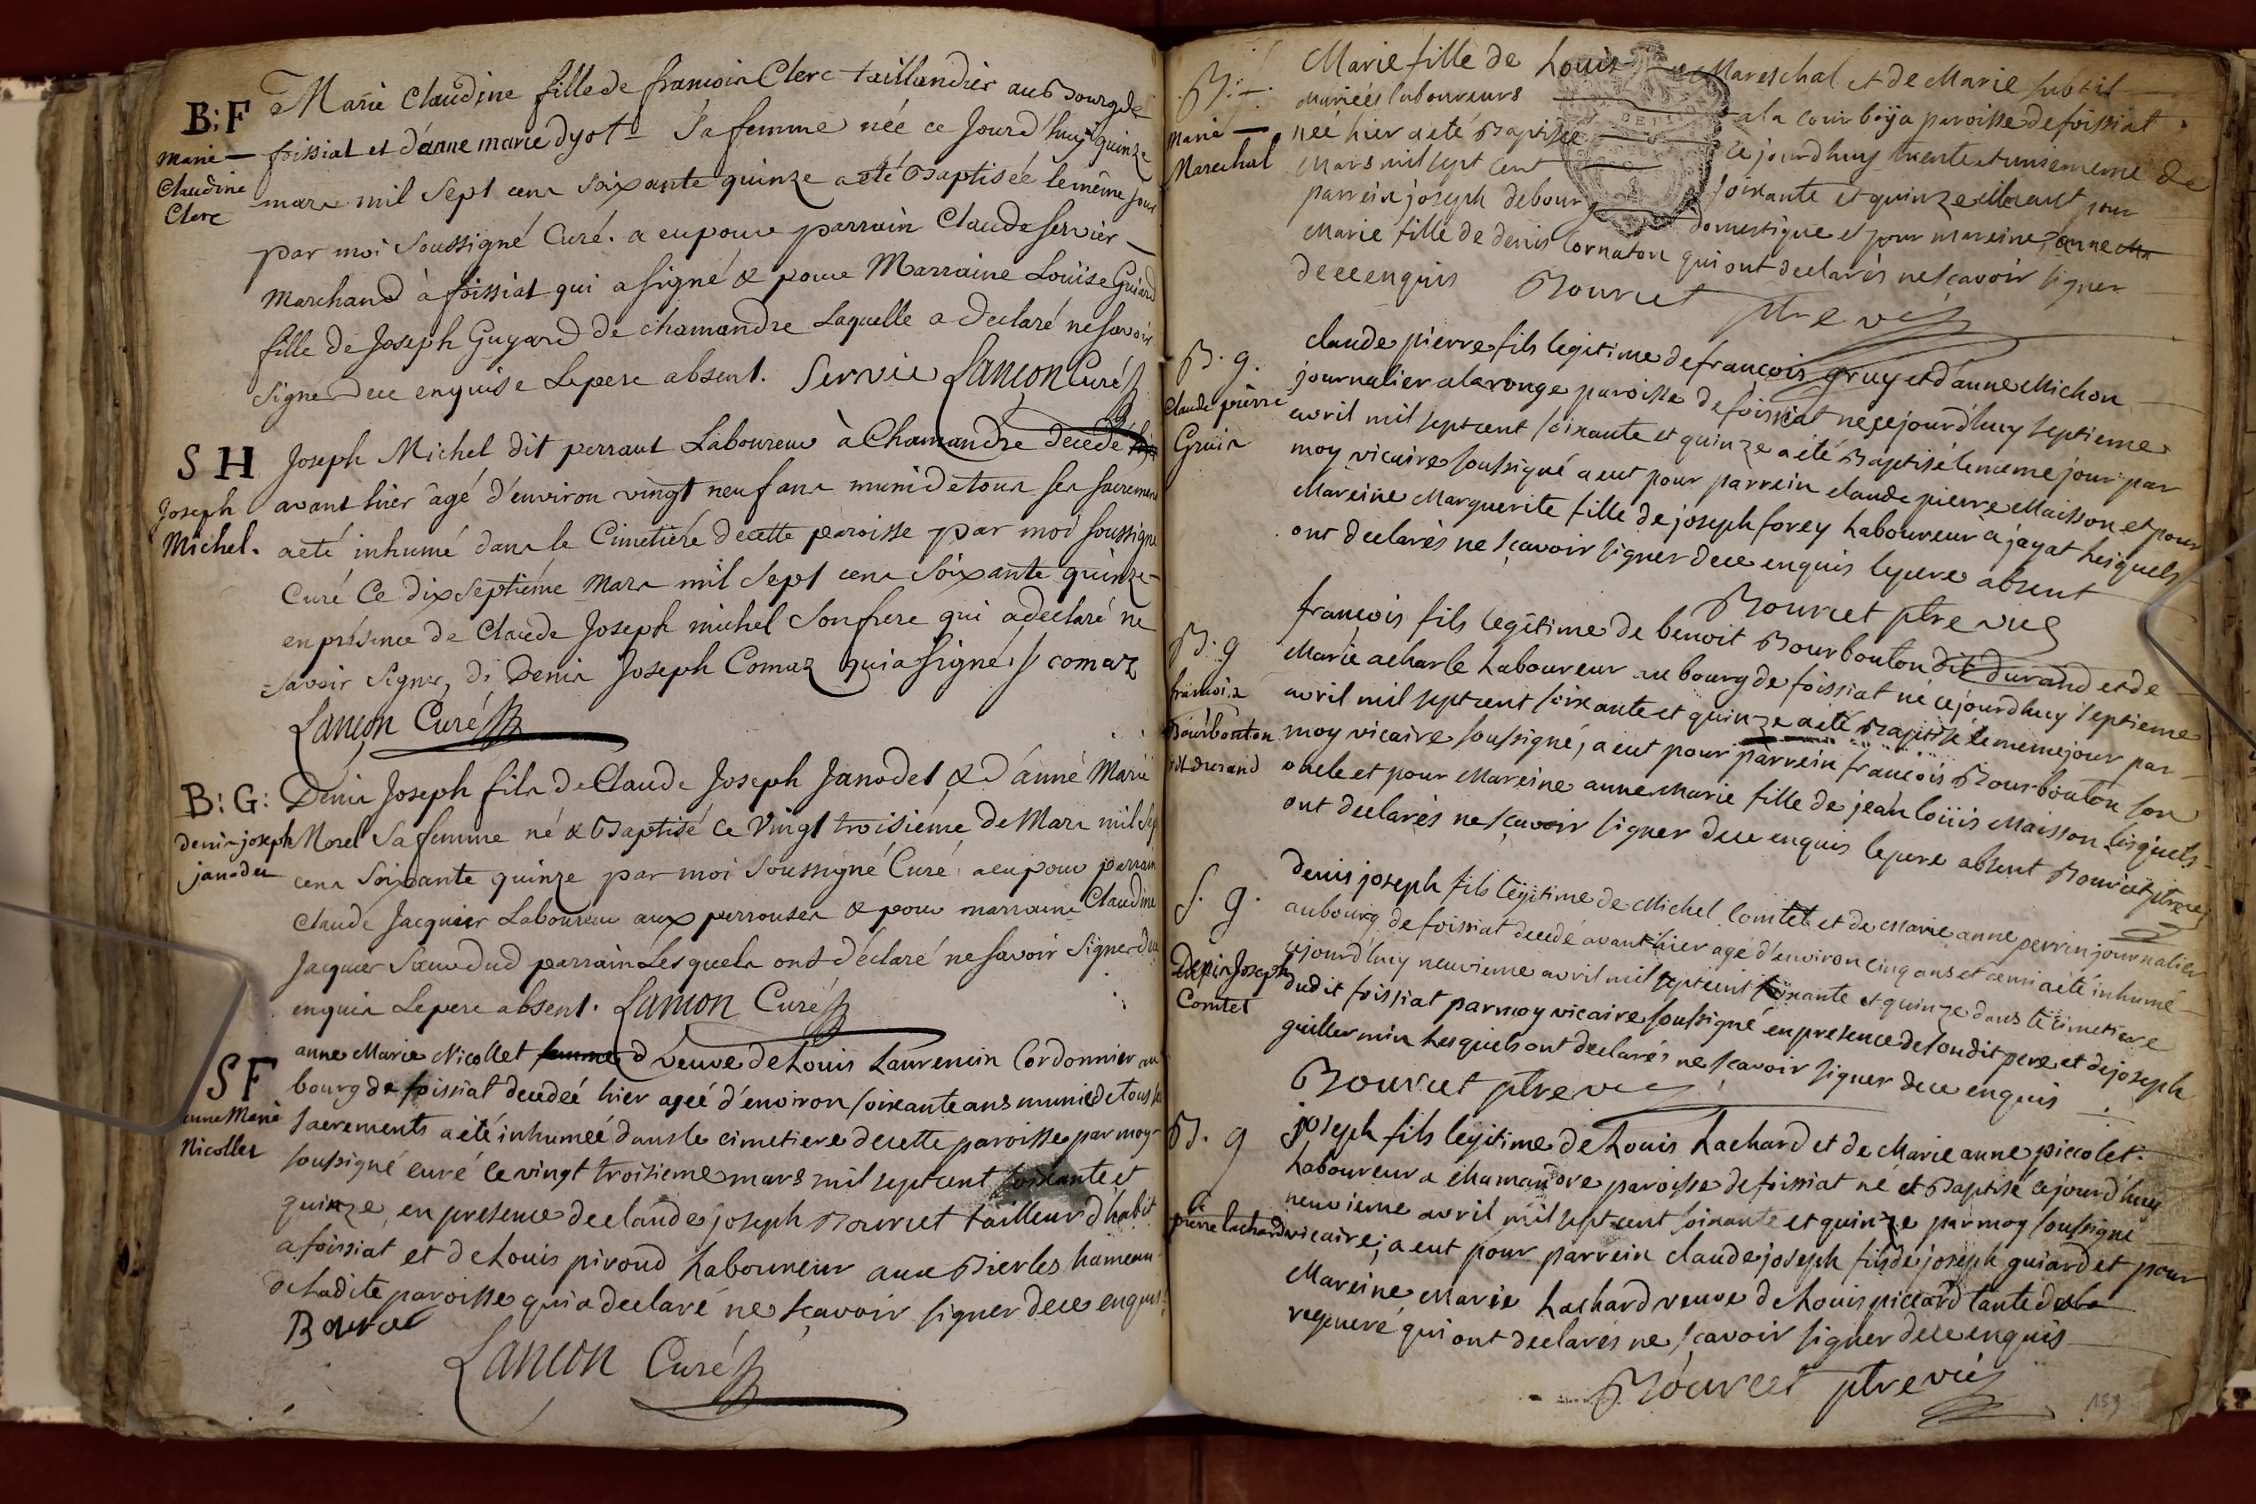 B: F
Marie
Claudine
Clerc
Marie Claudine fille de francois Clerc taillandier au Bourg de
foissiat et d'anne marie dyot Sa femme née ce Jourd'huy quinze
mars mil Sept cens Soixante quinze a eté Baptisée le même jour
par moi Soussigné Curé. a eu pour parrain Claude servier
Marchand à foissiat qui a signé & pour Marraine Louïse Guiard
fille de Joseph Guyard de chamandre Laquelle a declaré ne savoir
signer de ce enquise Le pere absent. Servie Lançon Curé
S H
Joseph
Michel.
Joseph Michel dit perraut Laboureur à Chamandre decedé
avant hier âgé d'environ vingt neuf ans muni de tous ses sacremens
a eté inhumé dans le Cimetiére de cette paroisse par moi soussigné
Curé Ce dix Septiéme Mars mil Sept cens Soixante quinze
en présence de Claude Joseph michel Son frere qui a declaré ne
savoir Signer, & Denis Joseph Comaz qui a signé. comaz
Lançon Curé
B: G:
denis joseph
janodet
Denis Joseph fils de Claude Joseph Janodet & d'anne Marie
Morel Sa femme né & Baptisé ce Vingt troisiéme De Mars mil Sep
cens Soixante quinze par moi Soussigné Curé a eu pour parrain
Claude Jacquier Laboureur aux perrouses & pour marraine Claudine
Jacquier Sœur dud parrain Lesquels ont déclaré ne savoir Signer de ce
enquis Le pere absent. Lancon Curé
S F
anne Marie
Nicollet
anne Marie Nicollet veuve de Louis Laurencin Cordonnier au
bourg de foissiat decedeé hier ageé d'environ soixante ans munie de tous les
sacrements a été inhumeé dans le cimetiere de cette paroisse par moy
soussigné curé le vingt troisieme mars mil sept cent soixante et
quinze, en presence de claude joseph Bourcet tailleur d'habit
a foissiat et de Louis piroud Laboureur aux Bierles hameau
de Ladite paroisse qui a declaré ne sçavoir signer de ce enquis.
Bourcet
Lancon Curé
B.
Marie
Marechal
Marie fille de Louis Mareschal et de Marie subtil
mariées laboureurs a la courbeÿa paroisse de foissiat
neé hier a eté Baptisée ce jourd'huy trente et unieme de
mars mil sept cent soixante et quinze elle a eut pour
parrein joseph debourg domestique et pour mareine, anne
Marie fille de denis Cornaton qui ont declarés ne sçavoir signer
de ce enquis Bourcet ptre vic
B. g.
Claude pierre
Gruis
claude pierre fils legitime de françois gruy et d'anne Michon
journalier a la ronge paroisse de foissiat né ce jourd'huy septieme
avril mil sept cent soixante et quinze a été Baptisé le meme jour par
moy vicaire soussigné a eut pour parrein claude pierre Maisson et pour
Mareine Marguerite fille de joseph forey Laboureur a jayat Lesquels
ont declarés ne sçavoir signer de ce enquis le pere absent
Bourcet ptre vic
B. g
francois
Bourbouton
dit durand
francois fils legitime de benoit Bourbouton dit durand et de
Marie acharle Laboureur au bourg de foissiat né ce jourd'huy septieme
avril mil sept cent soixante et quinze a été Baptisé le meme jour par
moy vicaire soussigné, a eut pour parrein francois Bourbouton son
oncle et pour Mareine anne Marie fille de jean loüis Maisson Lesquels
ont declarés ne sçavoir signer de ce enquis le pere absent Bourcet ptre vic
S. g.
Denis Joseph
Comtet
denis joseph fils legitime de Michel Comtet et de Marie anne perrin journalier
au bourg de foissiat decedé avant hier agé d'environ cinq ans et demi a été inhumé
ce jourd'huy neuvieme avril mil sept cent soixante et quinze dans le cimetiere
dudit foissiat par moy vicaire soussigné en presence de son dit pere et de joseph
guillermin Lesquels ont declarés ne sçavoir signer de ce enquis
Bourcet ptre vic
B. g
pierre lachard
joseph fils legitime de Louis Lachard et de Marie anne piccolet
Laboureur a chamandre paroisse de foissiat né et Baptisé ce jourd'huy
neuvieme avril mil sept cent soixante et quinze par moy soussigné
vicaire, a eut pour parrein claude joseph fils de joseph guiard et pour
Mareine Marie Lachard veuve de Louis piccard tante de
regeneré qui ont declarés ne sçavoir signer de ce enquis
Bourcet ptre vic
159